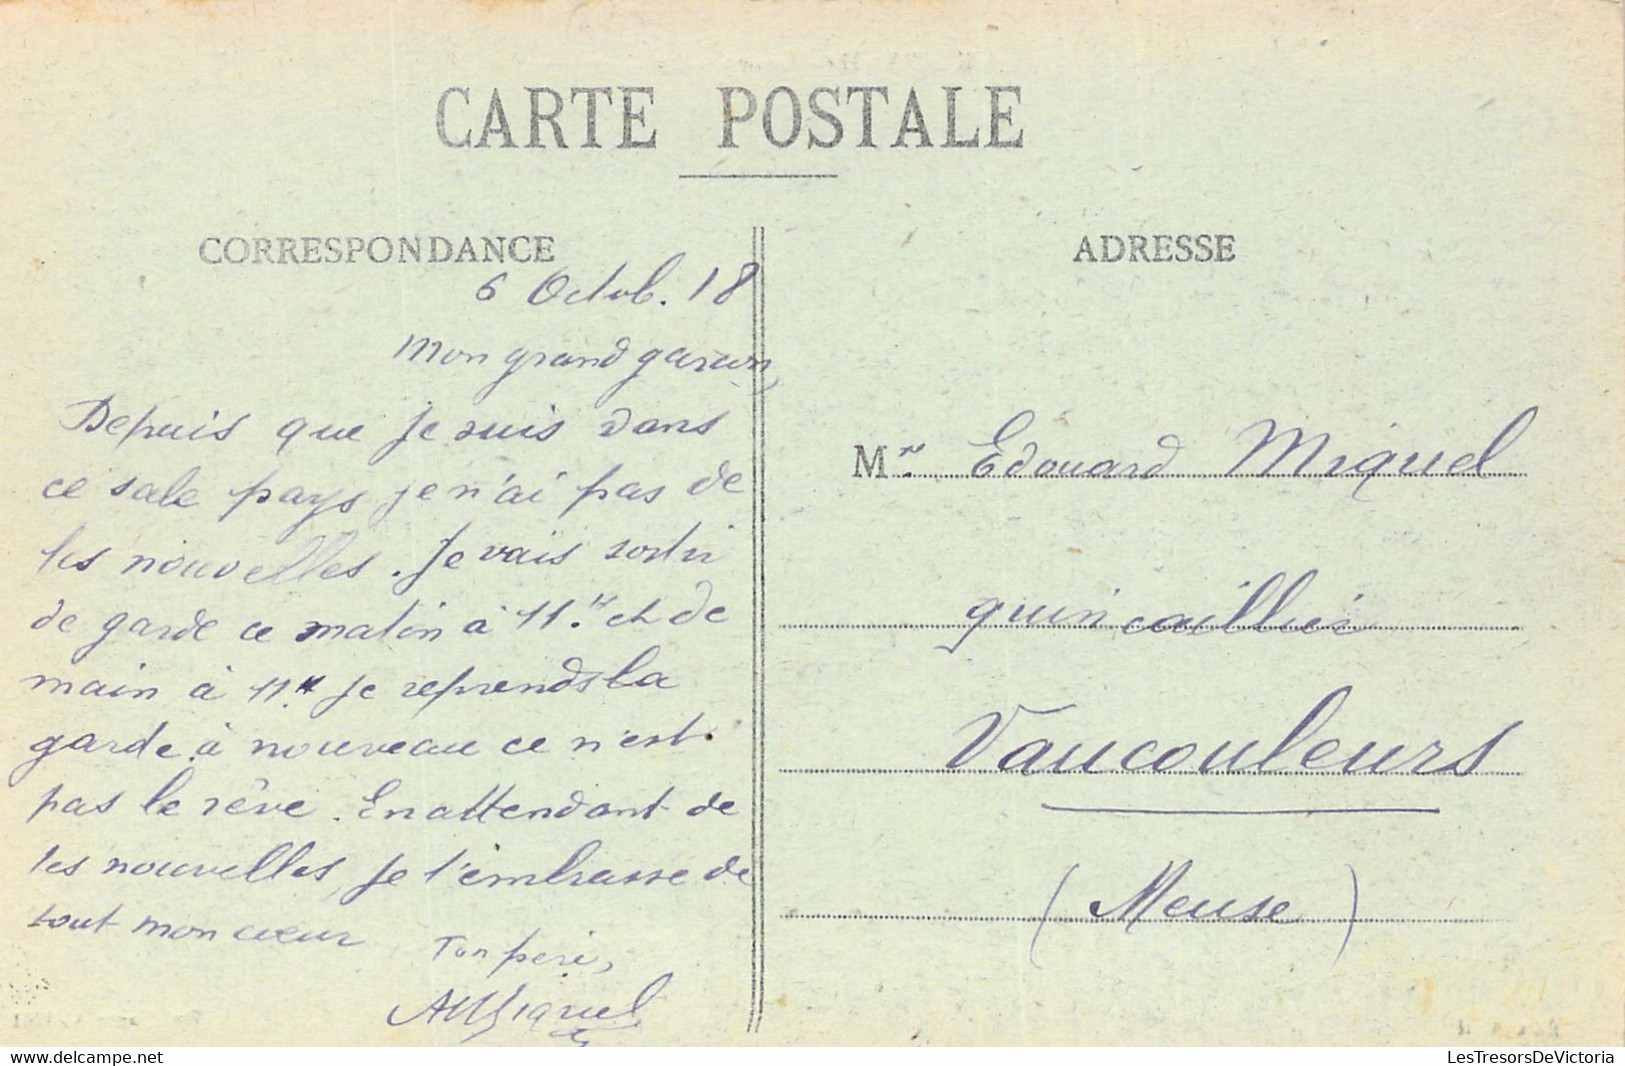 CARTE POSTALE
CORRESPONDANCE
6 Octob. 18
Mon grand garçon,
Depuis que je suis dans
ce sale pays je n'ai pas de
tes nouvelles. Je vais sortir
de garde ce matin à 11.H et de
main à 11.H je reprends la
garde à nouveau ce n'est
pas le rêve. En attendant de
tes nouvelles, je t'embrasse de
tout mon cœur
Ton père,
AMiquel
ADRESSE
Mr. Edouard Miquel
quincaillier
Vaucouleurs
(Meuse)
www.delcampe.net
LesTresorsDeVictoria